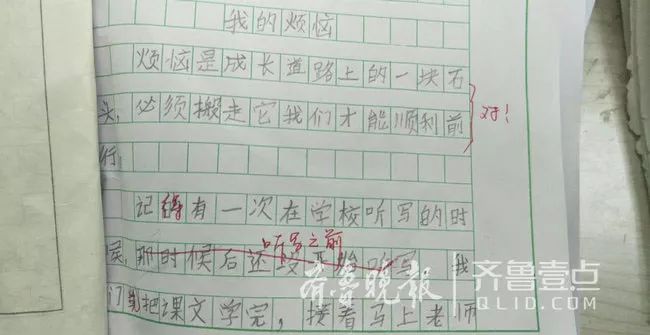 我的烦恼
烦恼是成长道路上的一块石
头,必须搬走它我们才能顺利前
对!
行。
记得有一次在学校听写的时
听写之前
候,那时候后还没开始听写,我
门就把课文学完,接着马上老师
齐鲁晚报 齐鲁壹点
QLID.COM